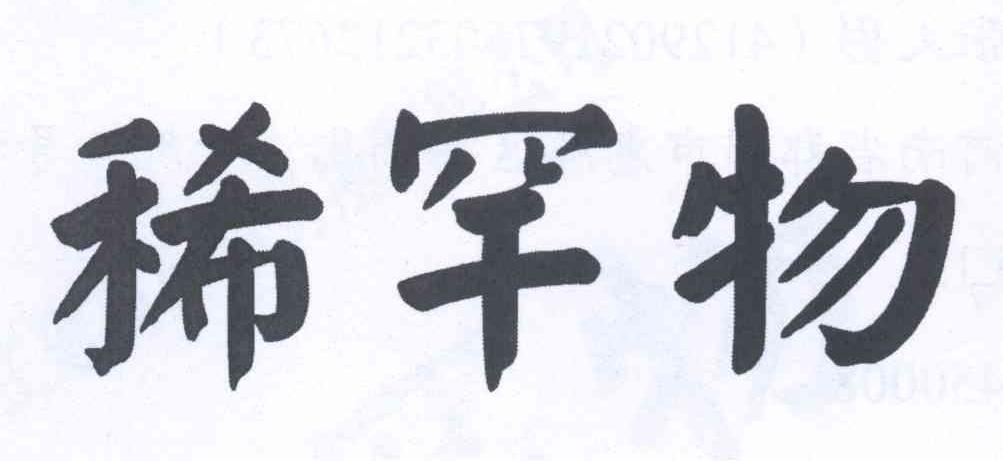 稀罕物